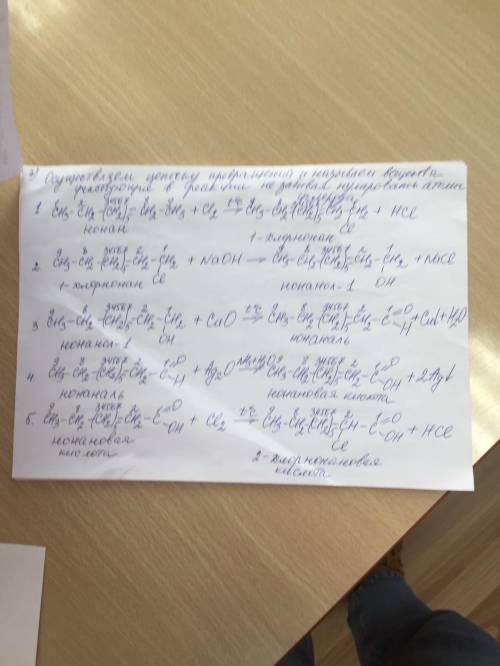 3) Осуществляем цепочку превращений и называем вещества
участвующие в реакции не забывая нумеровать атомы
1. CH₃-CH₂-(CH₂)₅-CH₂-CH₃ + Cl₂ → CH₃-CH₂-(CH₂)₅-CH₂-CH₂ + HCl
Cl
нонан
1-хлорнонан
2. CH₃-CH₂-(CH₂)₅-CH₂-CH₂ + NaOH → CH₃-CH₂-(CH₂)₅-CH₂-CH₂ + NaCl
1-хлорнонан Cl нонанол-1 OH
3. CH₃-CH₂-(CH₂)₅-CH₂-CH₂ + CuO →t°C CH₃-CH₂-(CH₂)₅-CH₂-C=O H + Cu↓ + H₂O
нонанол-1 OH нонаналь
4. CH₃-CH₂-(CH₂)₅-CH₂-C=O H + Ag₂O →NH₃+H₂O CH₃-CH₂-(CH₂)₅-CH₂-C=O OH + 2Ag↓
нонаналь нонановая кислота
5. CH₃-CH₂-(CH₂)₅-CH₂-C=O OH + Cl₂ →t°C CH₃-CH₂-(CH₂)₅-CH-C=O OH + HCl
нонановая Cl
кислота 2-хлорнонановая
кислота